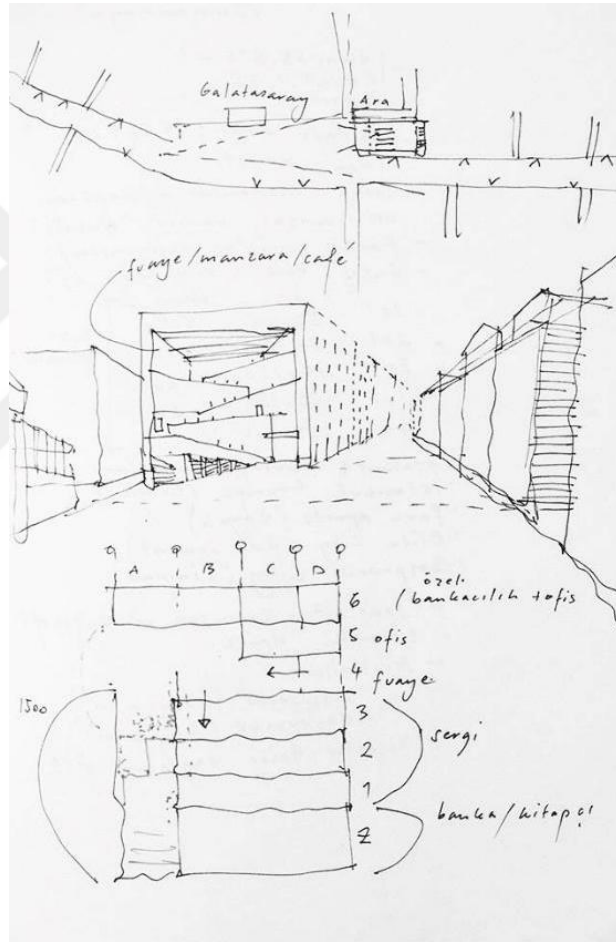 Galatasaray
Ara
fuaye/manzara/café
A B C D
6 özel
/bankacılık + ofis
5 ofis
4 fuaye
3
2
1
Z
sergi
banka/kitapçı
1500